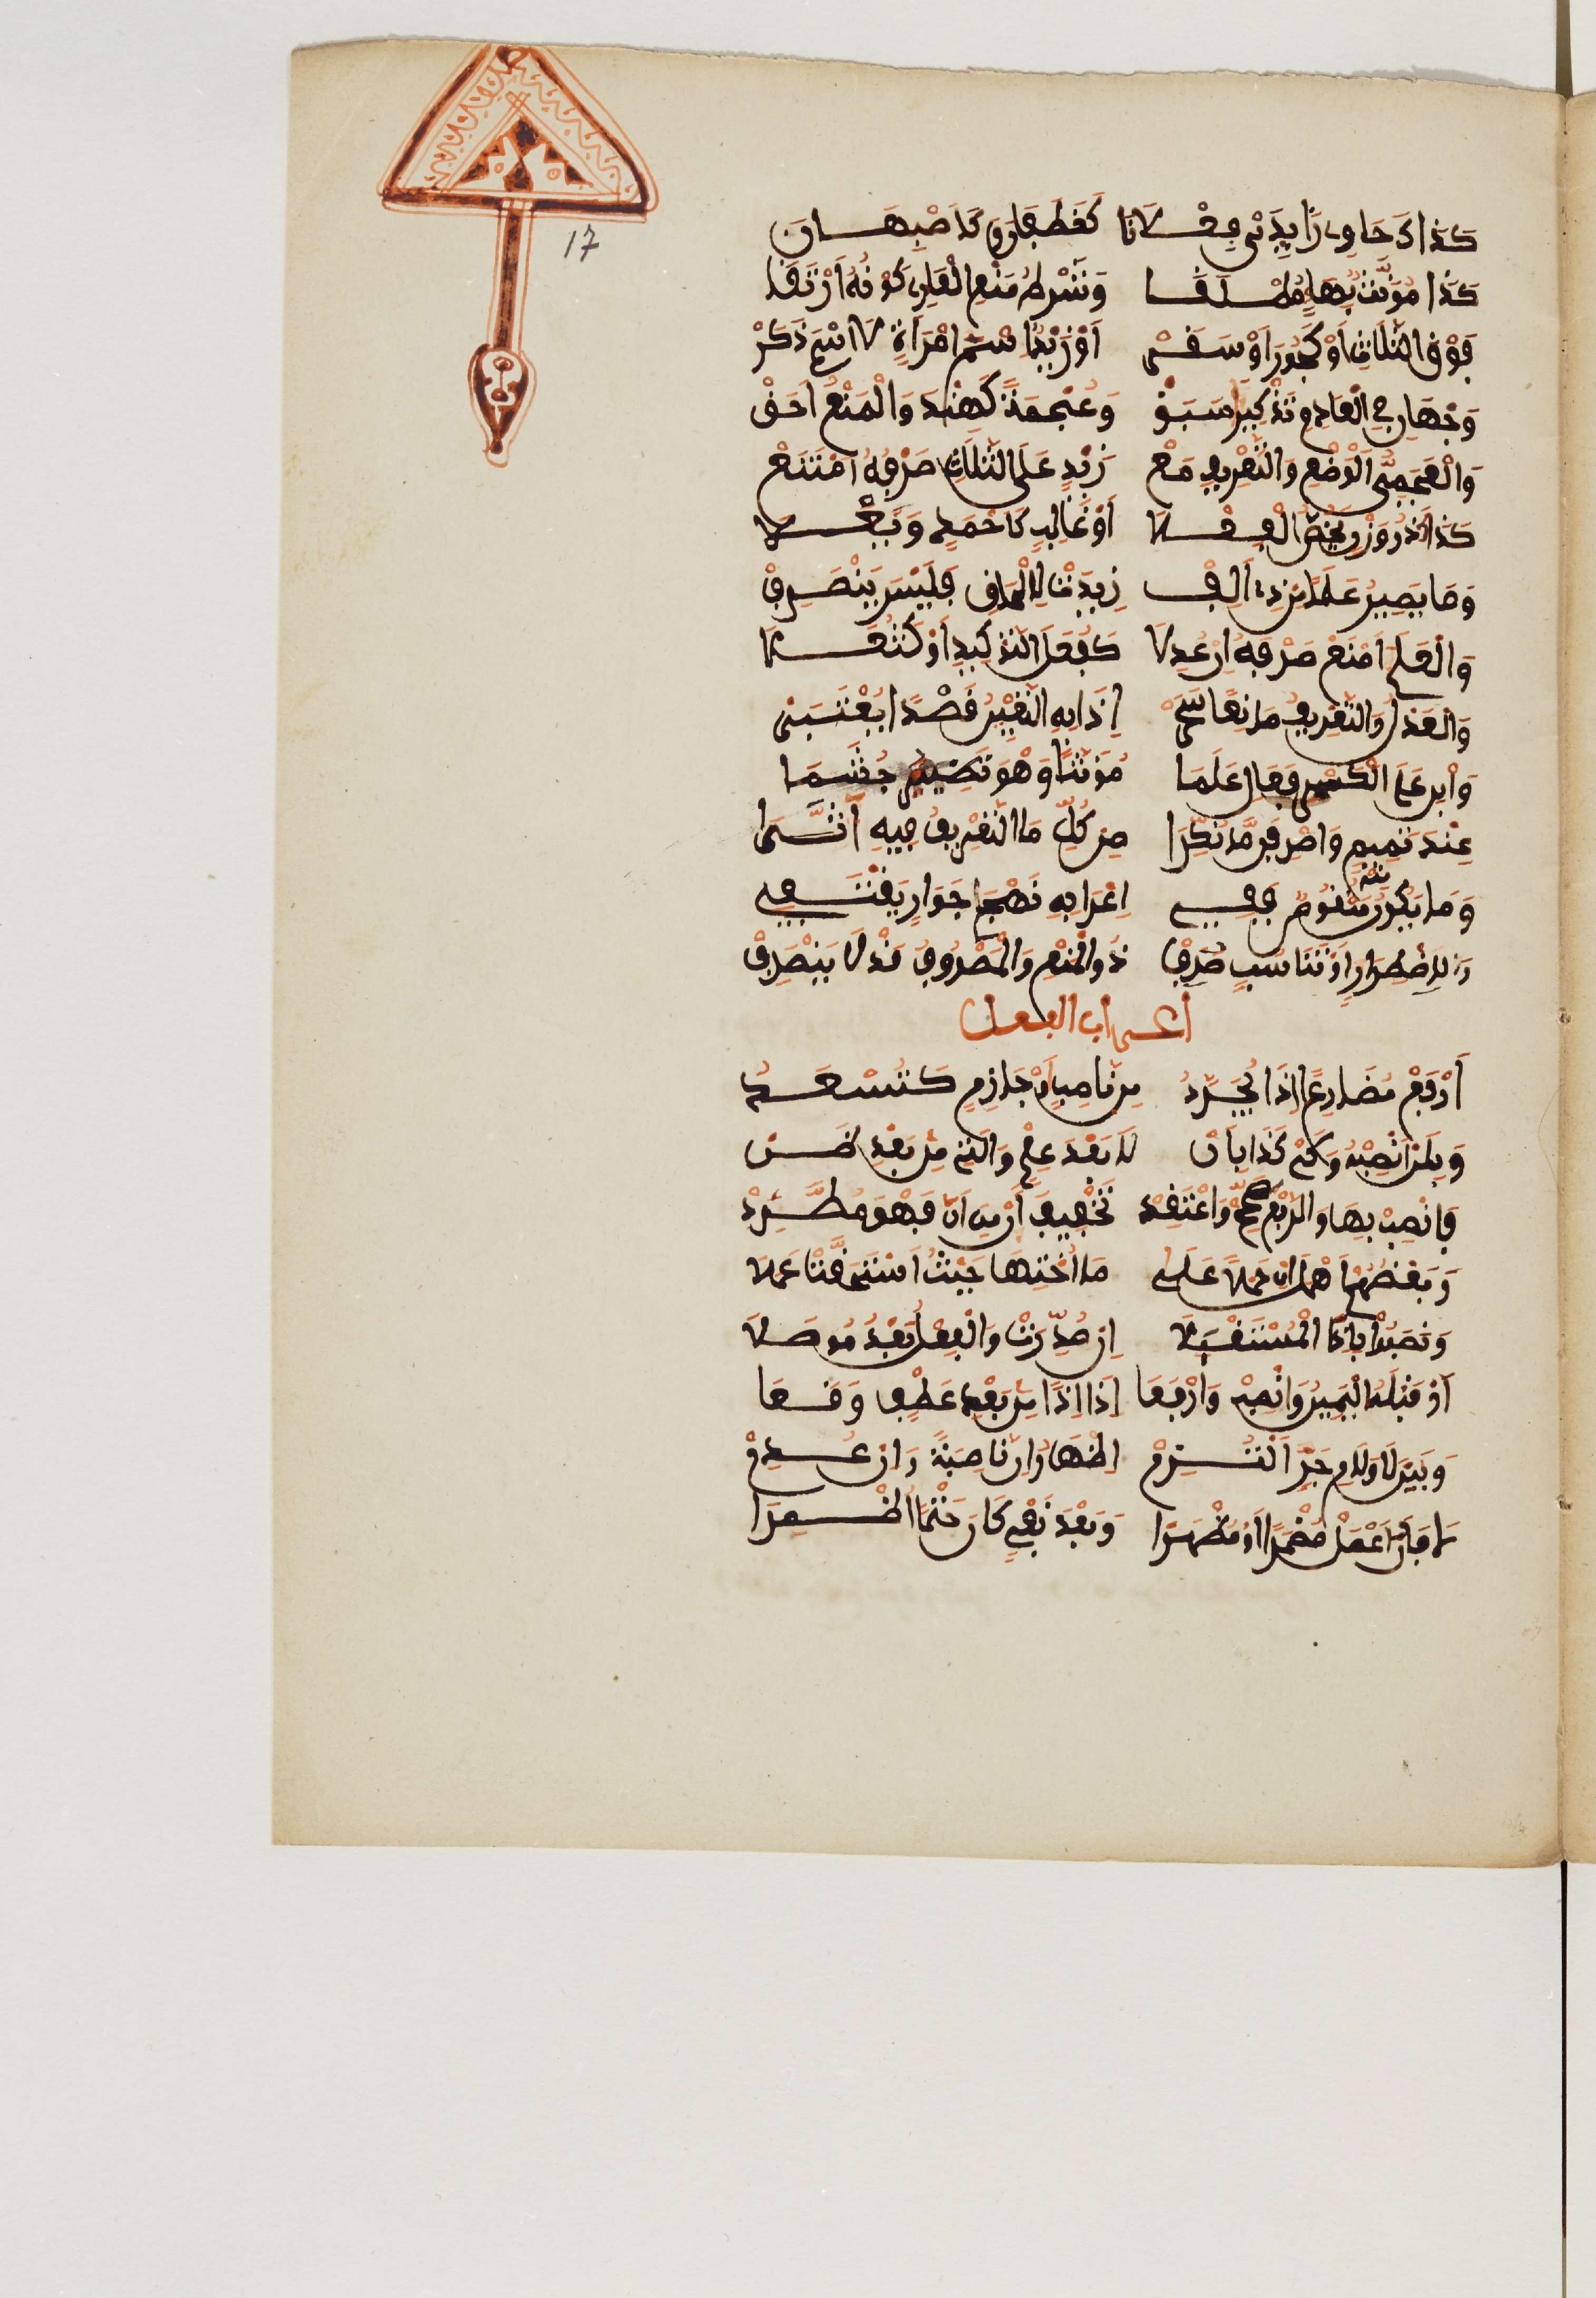 17
كَذَاكَ حَاوِي زَايِدَيْ فِعْلَانَا كَغَطَفَانَ وَكَاَصْبَهَانَ
كَذَا مُؤَنَّثٌ بِهَاءٍ مُطْلَقَا وَشَرْطُ مَنْعِ الْعَارِ كَوْنُهُ اَرْتَقَا
فَوْقَ الثَّلَاثِ اَوْ كَجُورَ اَوْ سَقَرْ اَوْ زَيْدٍ اسْمَ امْرَأَةٍ لَا اسْمَ ذَكَرْ
وَجْهَانِ فِي الْعَادِمِ تَذْكِيراً سَبَقْ وَعُجْمَةً كَهِنْدَ وَالْمَنْعُ اَحَقْ
وَالْعَجَمِيُّ الْوَضْعِ وَالتَّعْرِيفِ مَعْ زَيْدٍ عَلَى الثَّلَاثِ صَرْفُهُ امْتَنَعْ
كَذَاكَ ذُو وَزْنٍ يَخُصُّ الْفِعْلَا اَوْ غَالِبٍ كَأَحْمَدٍ وَيَعْلَا
وَمَا يَصِيرُ عَلَماً مِنْ ذِي اَلِفْ زِيدَتْ لِإِلْحَاقٍ فَلَيْسَ يَنْصَرِفْ
وَالْعَلَمَ امْنَعْ صَرْفَهُ اِنْ عُدِلَا كَفُعَلِ التَّوْكِيدِ اَوْ كَثُعَلَا
وَالْعَدْلُ وَالتَّعْرِيفُ مَانِعَا سَحَرْ إِذَا بِهِ التَّعْيِينُ قَصْداً يُعْتَبَرْ
وَابْنِ عَلَى الْكَسْرِ فَعَالِ عَلَمَا مُؤَنَّثاً وَهْوَ نَظِيرُ جُشَمَا
عِنْدَ تَمِيمٍ وَاصْرِفَنْ مَا نُكِّرَا مِنْ كُلِّ مَا التَّعْرِيفُ فِيهِ اَثَّرَا
وَمَا يَكُونُ مِنْهُ مَنْقُوصاً فَفِي اِعْرَابِهِ نَهْجَ جَوَارٍ يَقْتَفِي
وَلِاضْطِرَارٍ اَوْ تَنَاسُبٍ صُرِفْ ذُو الْمَنْعِ وَالْمَصْرُوفُ قَدْ لَا يَنْصَرِفْ
اعراب الفعل
اَرْفَعْ مُضَارِعاً إِذَا يُجَرَّدُ مِنْ نَاصِبٍ اَوْ جَازِمٍ كَتُسْعَدُ
وَبِلَنِ انْصِبْهُ وَكَيْ كَذَا بِاَنْ لَا بَعْدَ عِلْمٍ وَالَّتِي مِنْ بَعْدِ ظَنْ
فَانْصِبْ بِهَا وَالرَّفْعَ صَحِّحْ وَاعْتَقِدْ تَخْفِيفَهَا مِنْ اَنَّ فَهْوَ مُطَّرِدْ
وَبَعْضُهُمْ اَهْمَلَ اَنْ حَمْلاً عَلَى مَا اُخْتِهَا حَيْثُ اسْتَحَقَّتْ عَمَلَا
وَنَصَبُوا بِإِذاً الْمُسْتَقْبَلَا اِنْ صُدِّرَتْ وَالْفِعْلُ بَعْدُ مُوصَلَا
اَوْ قَبْلَهُ الْيَمِينُ وَانْصِبْ وَارْفَعَا إِذَا إِذاً مِنْ بَعْدِ عَطْفٍ وَقَعَا
وَبَيْنَ لَا وَلَامِ جَرٍّ الْتُزِمْ اِظْهَارُ اَنْ نَاصِبَةً وَاِنْ عُدِمْ
لَا فَاَنَ اعْمَلْ مُضْمَراً اَوْ مُظْهَرَا وَبَعْدَ نَفْيِ كَانَ حَتْماً اُضْمِرَا